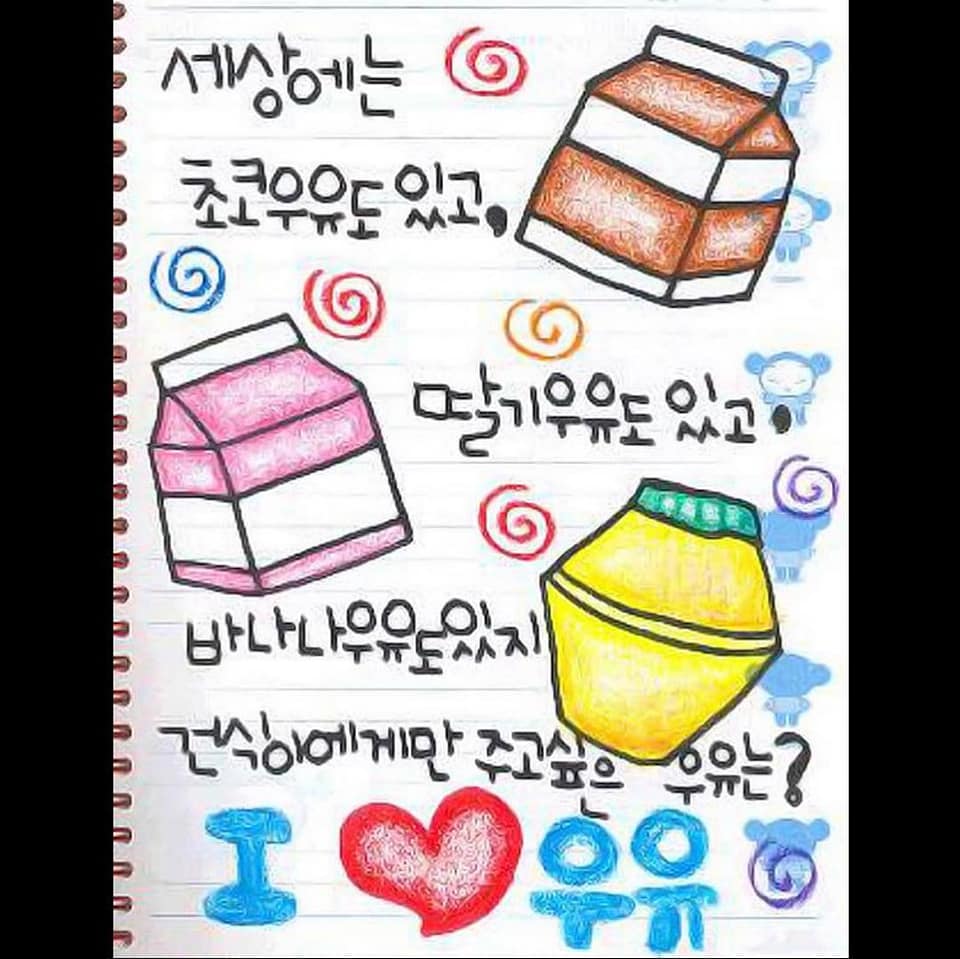 세상에는
초코우유도 있고,
딸기우유도 있고,
바나나우유도있지
건식이에게만 주고싶은 우유는?
I ♥ 우유